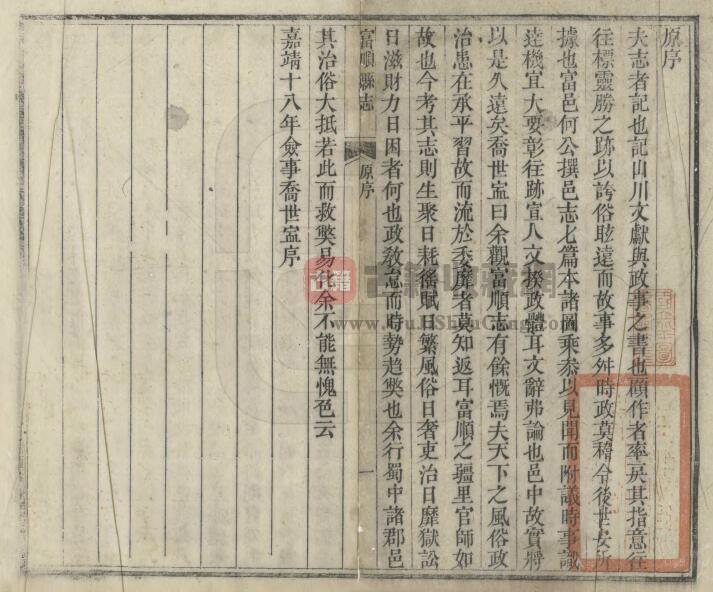 原序
夫志者記也記山川文獻與政事之書也顧作者率戾其指意往
往標靈勝之跡以誇俗眩遠而故事多舛時政莫稽令後世安所
據也富邑何公撰邑志七篇本諸圖乘叅以見聞而附議時事識
逹機宜大要彰往跡宣人文揆政體耳文辭弗論也邑中故實將
以是乆遠矣喬世寍曰余觀富順志有餘慨焉夫天下之風俗政
治患在承平習故而流於委靡者莫知返耳富順之疆里官師如
故也今考其志則生聚日耗徭賦日繁風俗日奢吏治日靡獄訟
日滋財力日困者何也政敎怠而時勢趋獘也余行蜀中諸郡邑
富順縣志
原序
一
其治俗大抵若此而救獘易化余不能無愧色云
嘉靖十八年僉事喬世寍序
古籍
古籍收藏网
www.GuJiShouCang.com